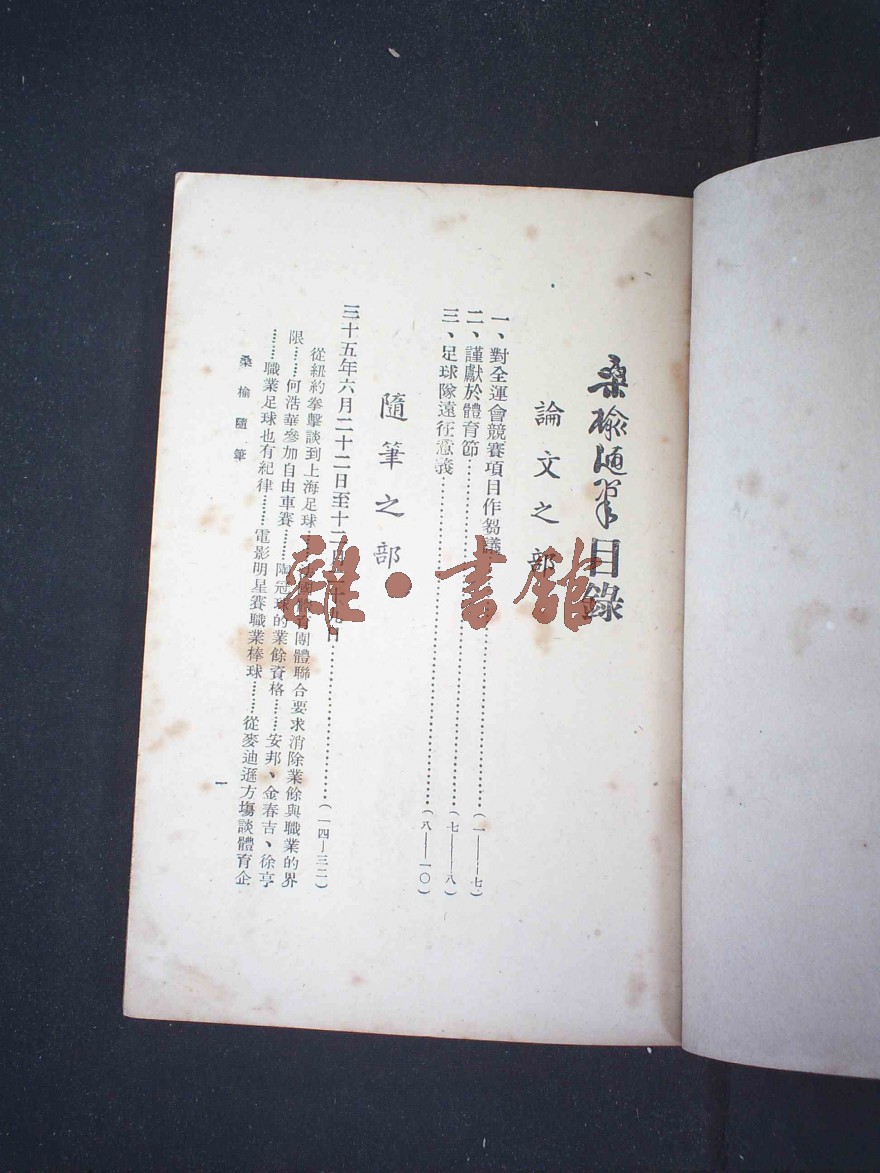 桑榆隨筆目錄
論文之部
一、對全運會競賽項目作芻議………………(一——七)
二、謹獻於體育節………………(七——八)
三、足球隊遠征意義………………(八——一〇)
隨筆之部
三十五年六月二十二日至十二月二十九日………………(一四—三二)
從紐約拳擊談到上海足球……國體育團體聯合要求消除業餘與職業的界
限……何浩華參加自由車賽……陶冠球的業餘資格……安邦、金春吉、徐亨
……職業足球也有紀律……電影明星賽職業棒球……從麥迪遜方場談體育企
桑榆隨筆
一
雜·書館